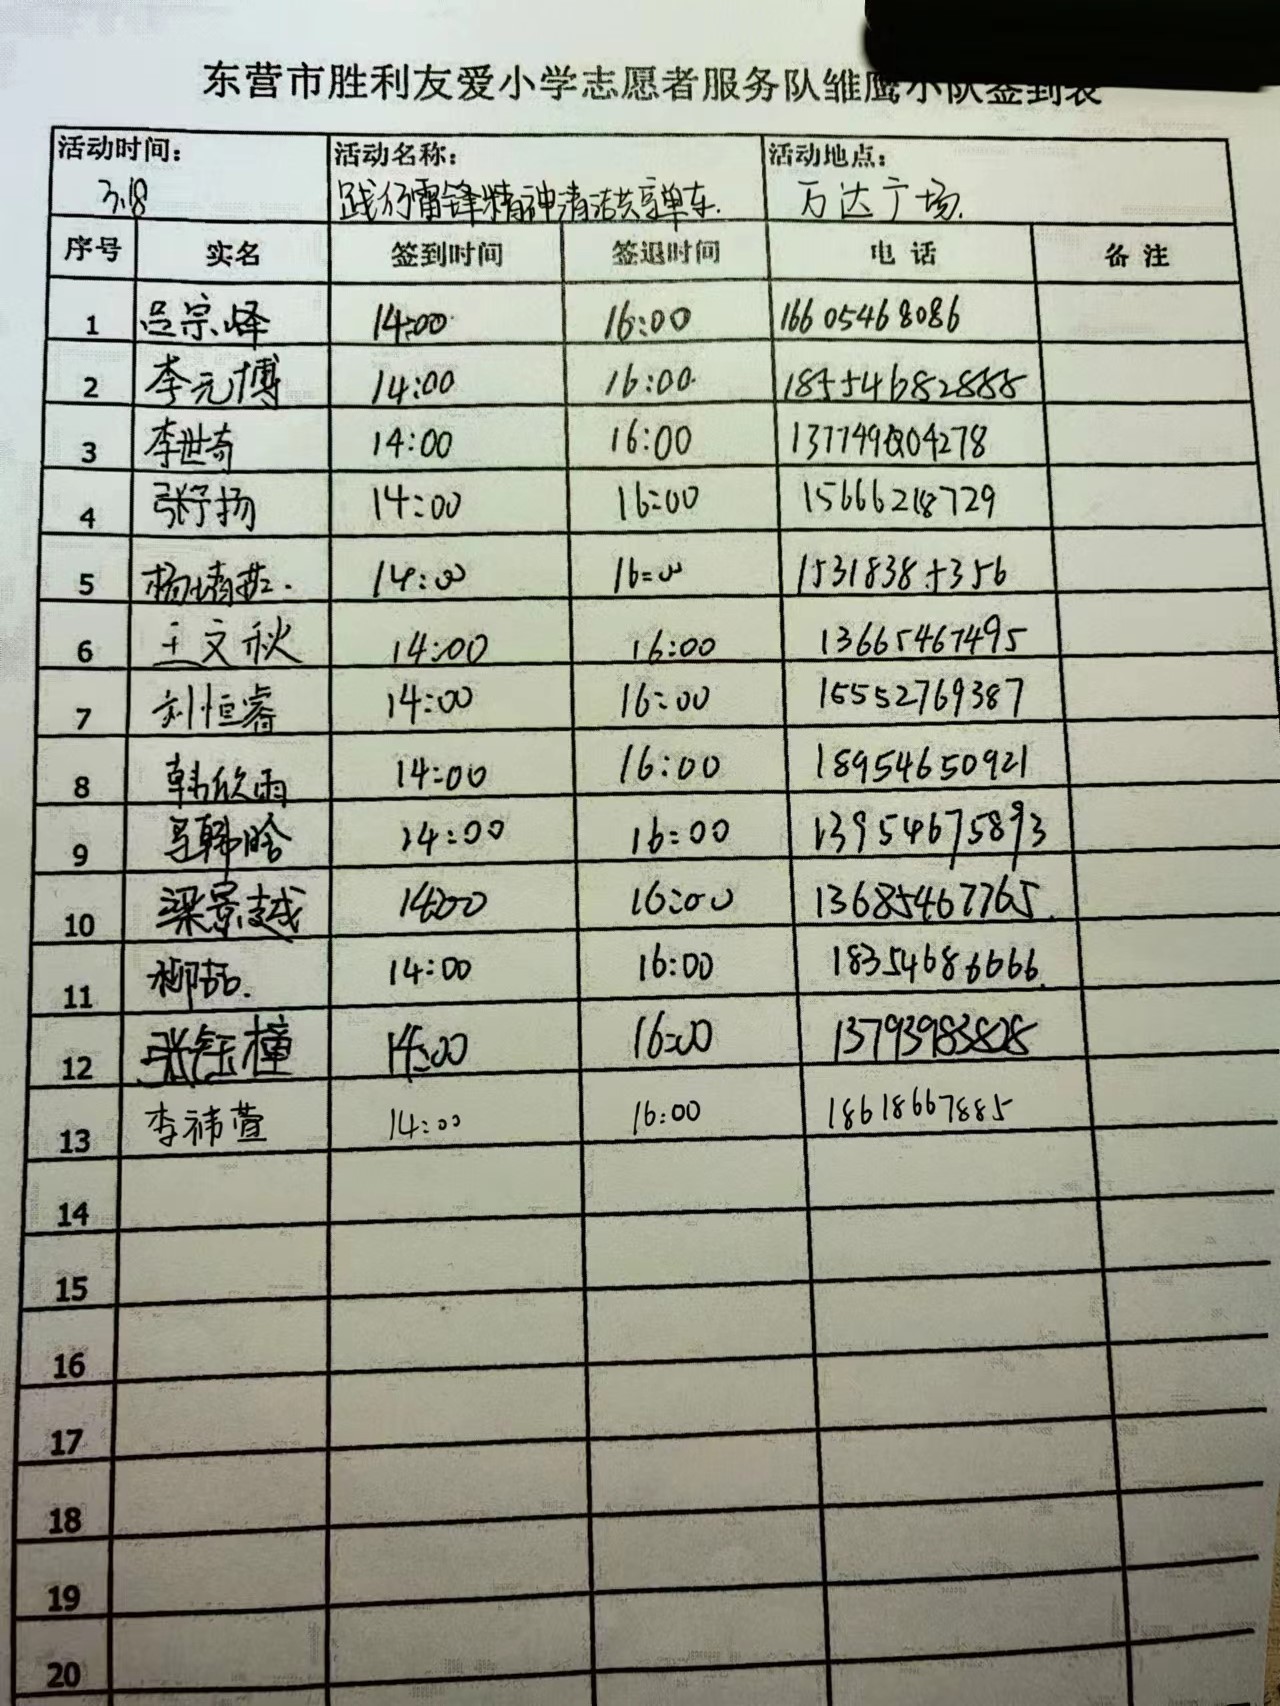 东营市胜利友爱小学志愿者服务队雏鹰小队签到表
活动时间： 活动名称： 活动地点：
3.18 践行雷锋精神清洁共享单车. 万达广场.
序号 实名 签到时间 签退时间 电 话 备 注
1 吕宗峄 14:00 16:00 16605468086
2 李元博 14:00 16:00 18554682888
3 李世奇 14:00 16:00
4 张予扬 14:00 16:00 15666218729
5 14:00 16:00
6 王文秋 14:00 16:00 13665467495
7 刘恒睿 14:00 16:00 15552769387
8 韩欣雨 14:00 16:00 18954650921
9 14:00 16:00 13954675893
10 梁景越 14:00 16:00 13685467765.
11 14:00 16:00 18354686666.
12 张钰橦 14:00 16:00 13793983828
13 李祎萱 14:00 16:00 18618667885
14
15
16
17
18
19
20